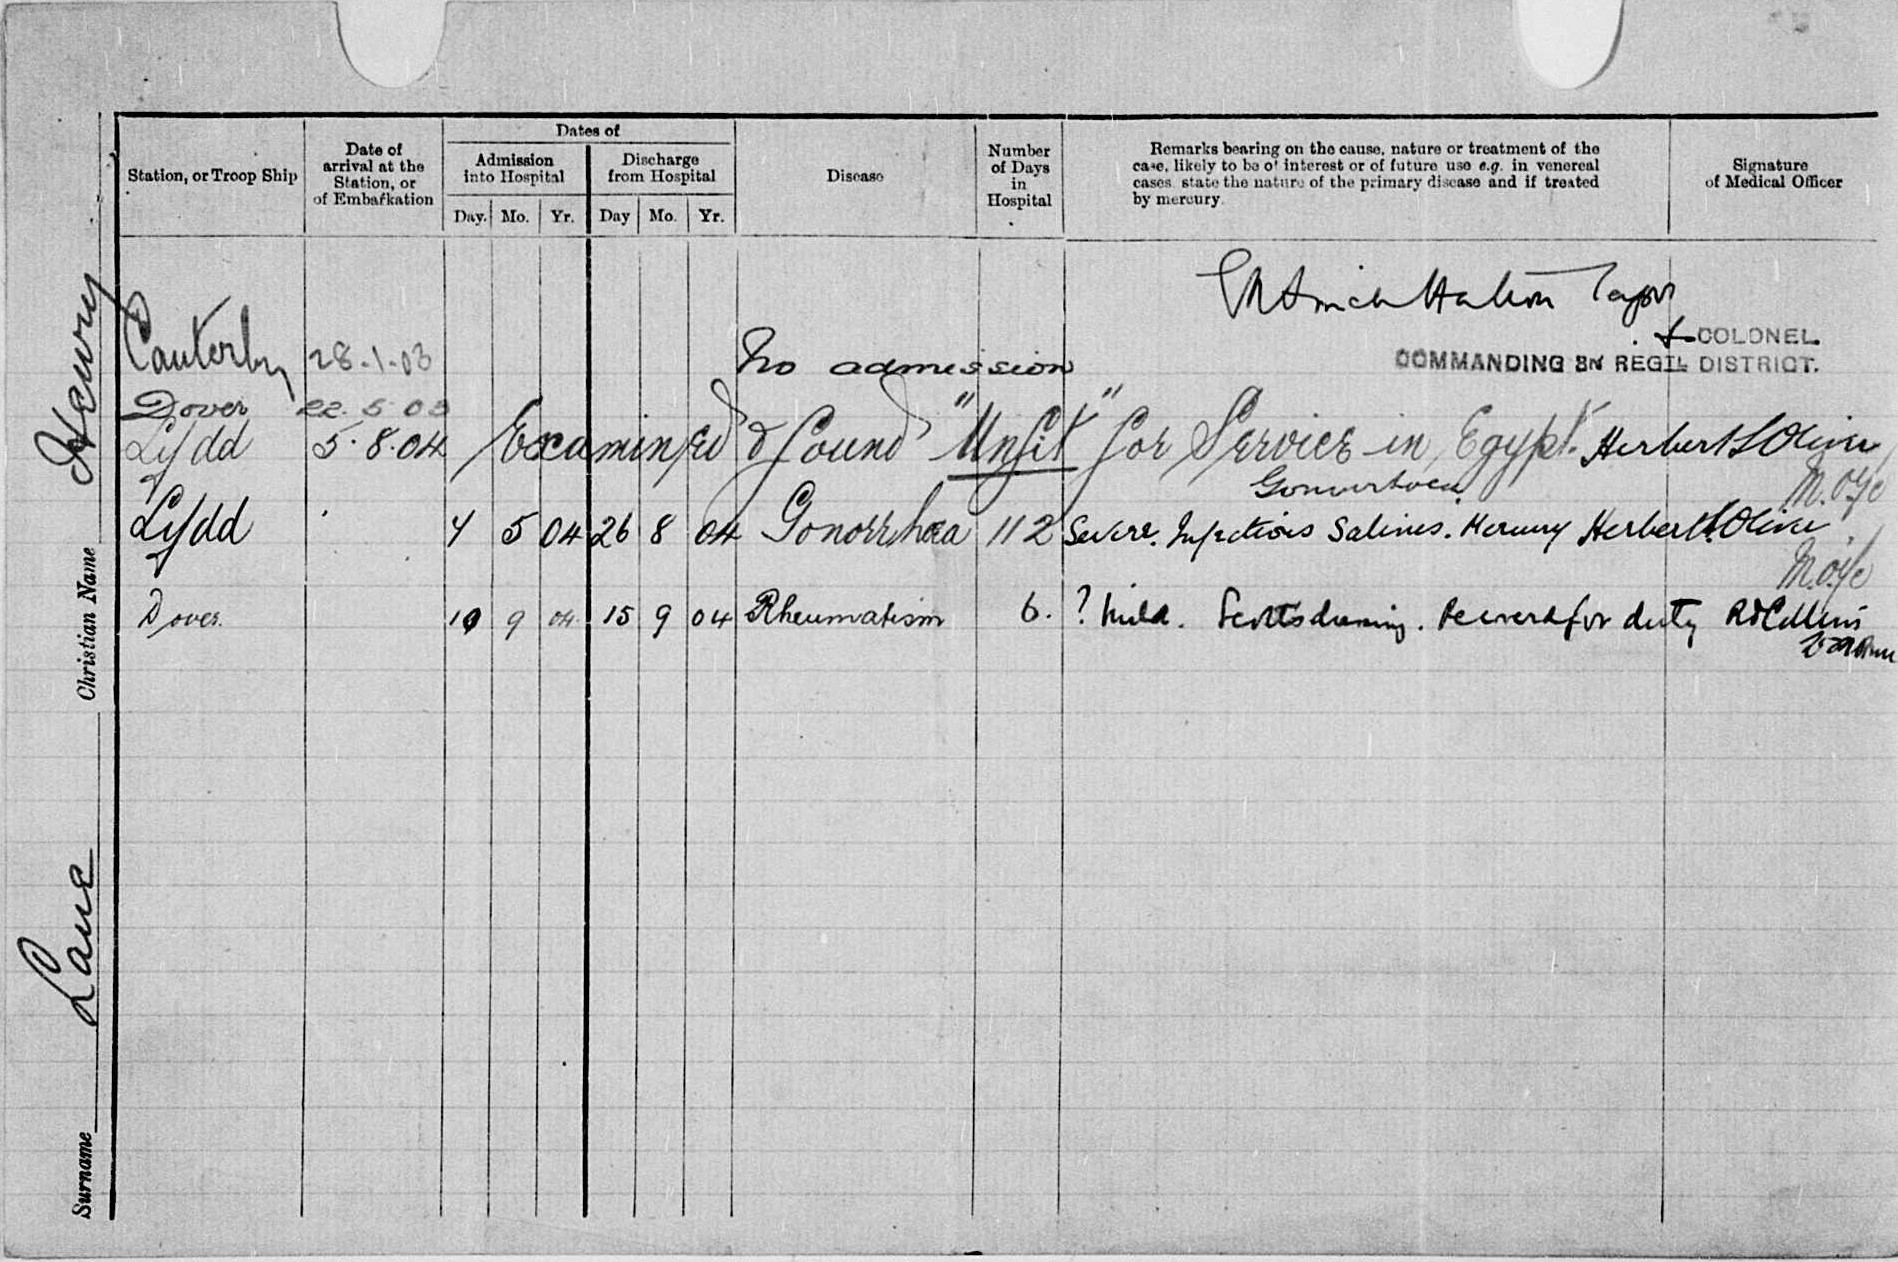 Surname Lane Christian Name Henry
Station, or Troop Ship
Date of arrival at the Station, or of Embarkation
Dates of
Admission into Hospital
Discharge from Hospital
Day. Mo. Yr. Day Mo. Yr.
Disease
Number of Days in Hospital
Remarks bearing on the cause, nature or treatment of the
case, likely to be of interest or of future use e.g. in venereal
cases state the nature of the primary disease and if treated
by mercury
Signature of Medical Officer
COLONEL.
Canterby 28-1-03 No admission
COMMANDING 3RD REGTL DISTRICT.
Dover 22.5.03
Lydd 5.8.04 Examined & found "Unfit" for Service in Egypt. Herbert Oliver
Lydd 7 5 04 26 8 04 Gonorrhœa 112 Severe. Injections Salines. Mercury Herbert Oliver
Dover. 10 9 04 15 9 04 Rheumatism 6. ? Mild. Scotts dressing. Recovered for duty Collins